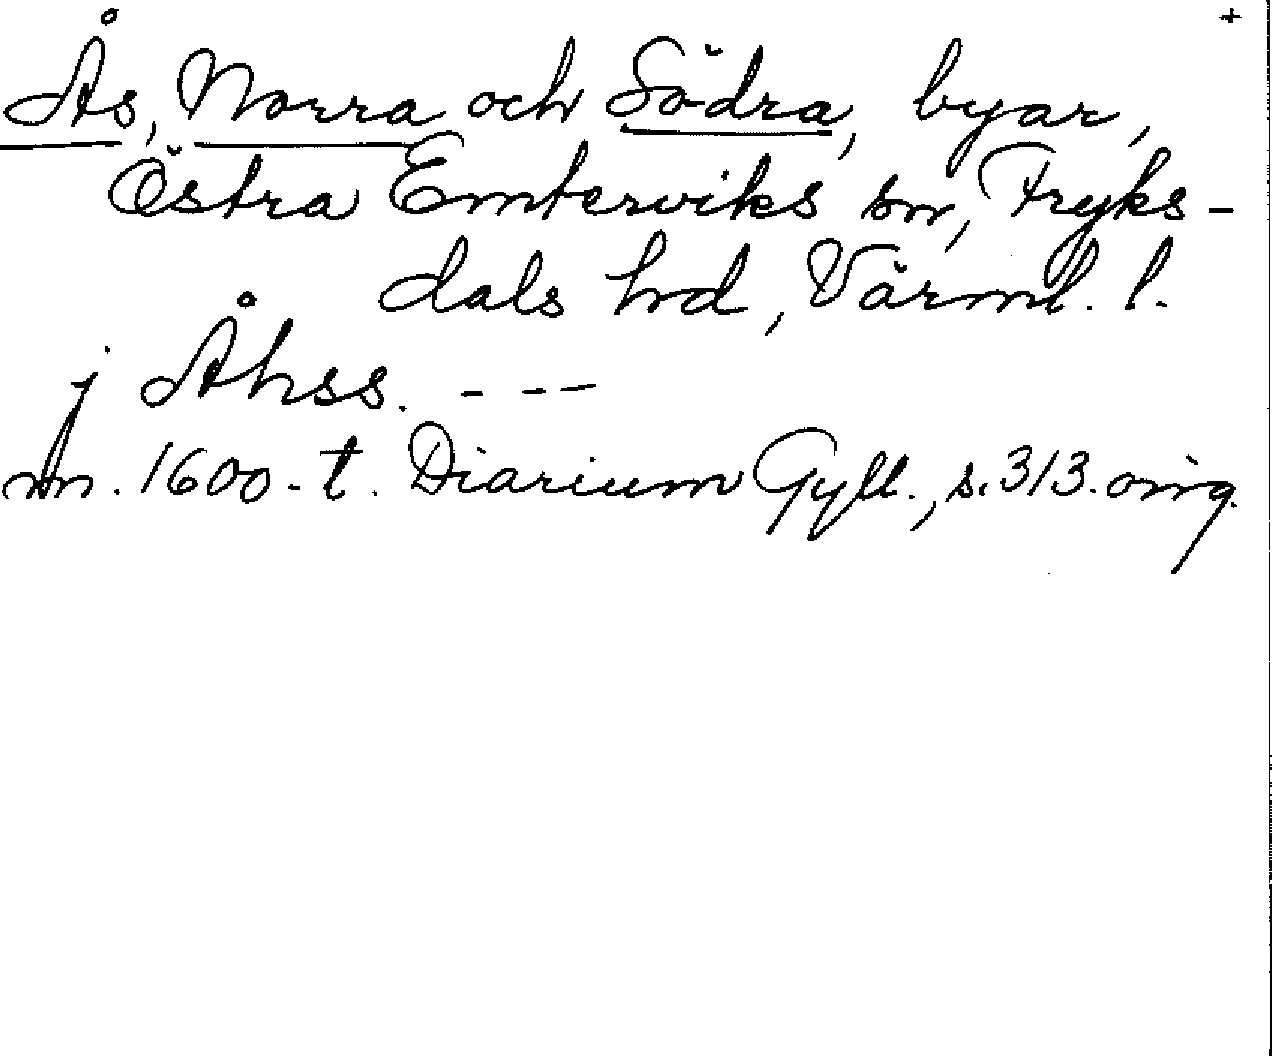 +
Ås, Norra och Södra, byar,
Östra Emterviks sn, Fryks-
dals hrd, Värml. l.
j Åhss. - - -
mn. 1600-t. Diarium Gyll., s. 313. orig.